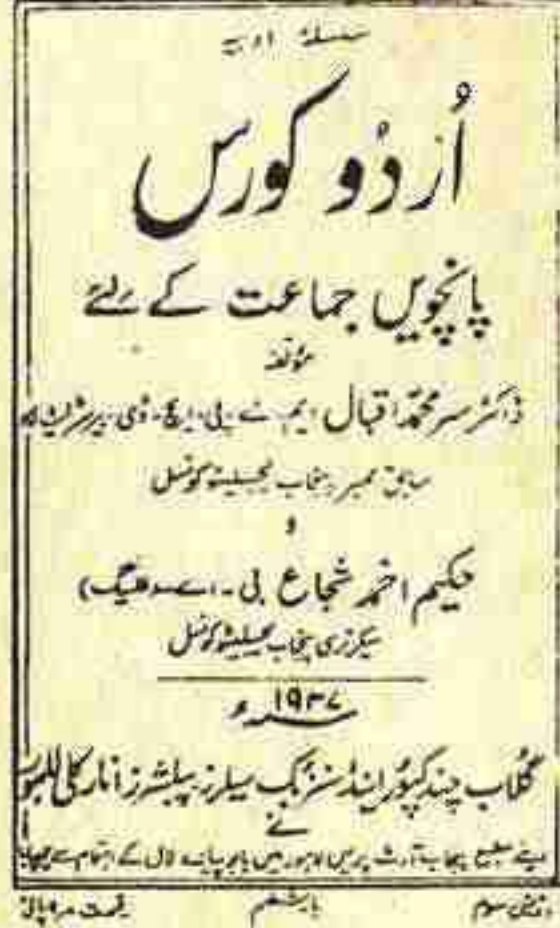 سلسلۂ ادبیہ
اُردُو کورس
پانچویں جماعت کے لئے
مؤلفہ
ڈاکٹر سر محمد اقبال ایم۔ اے۔ پی۔ ایچ۔ ڈی۔ بیرسٹر ایٹ لا
سابق ممبر پنجاب لیجسلیٹو کونسل
و
حکیم احمد شجاع بی۔ اے۔ (علیگ)
سیکرٹری پنجاب لیجسلیٹو کونسل
۱۹۳۷ء
گلاب چند کپور اینڈ سنز بک سیلرز پبلشرز انار کلی لاہور
نے
اپنے مطبع پنجاب آرٹ پریس لاہور میں بابو پیارے لال کے اہتمام سے چھپایا
سوم
بار ششم
قیمت